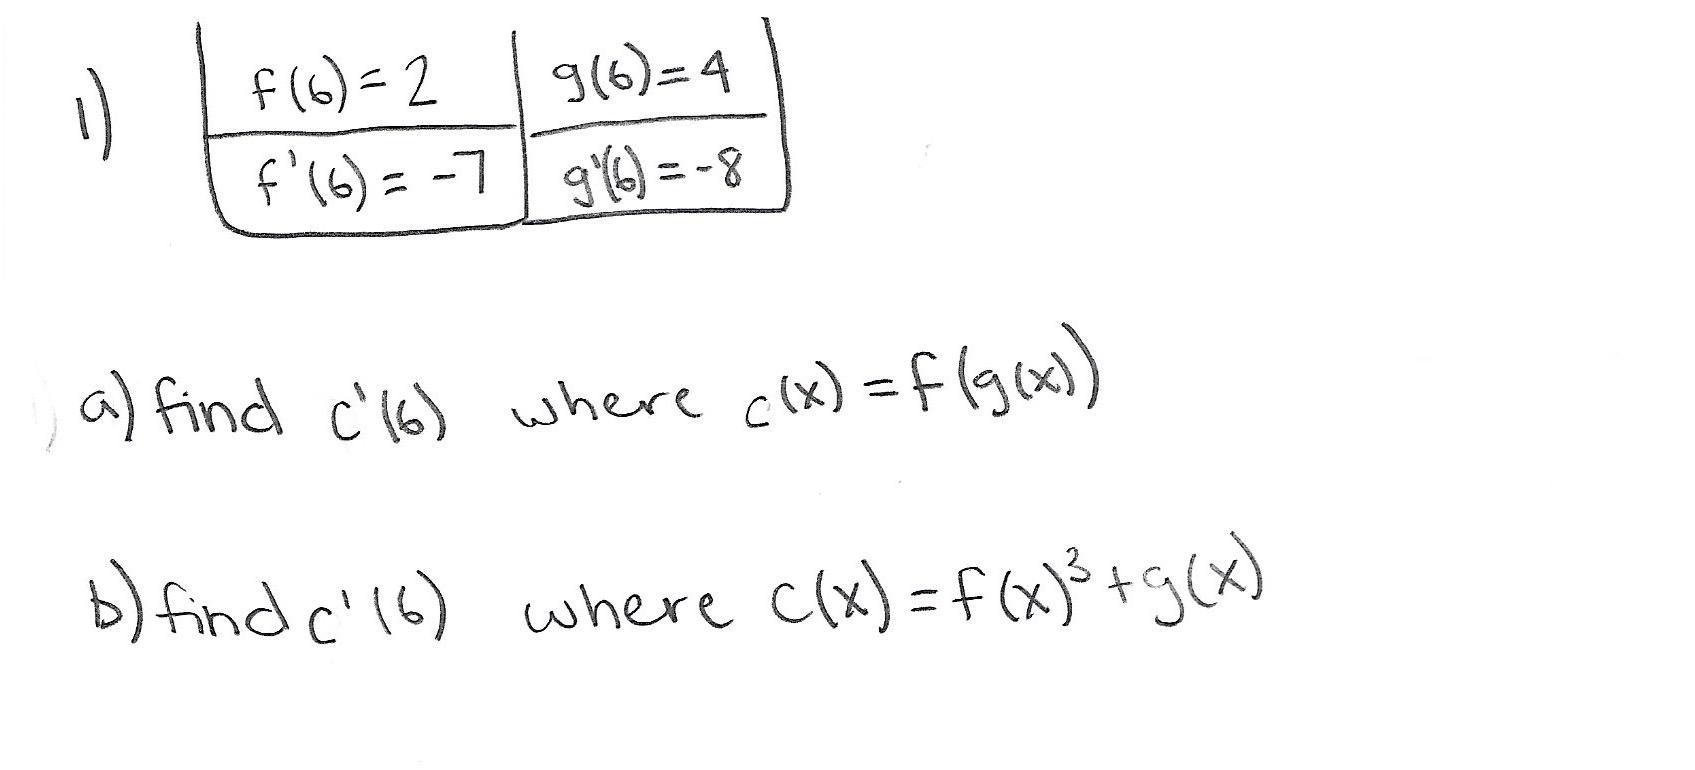 1) f(6)=2 g(6)=4
f'(6)=-7 g'(6)=-8
a) find c'(6) where c(x)=f(g(x))
b) find c'(6) where c(x)=f(x)³+g(x)